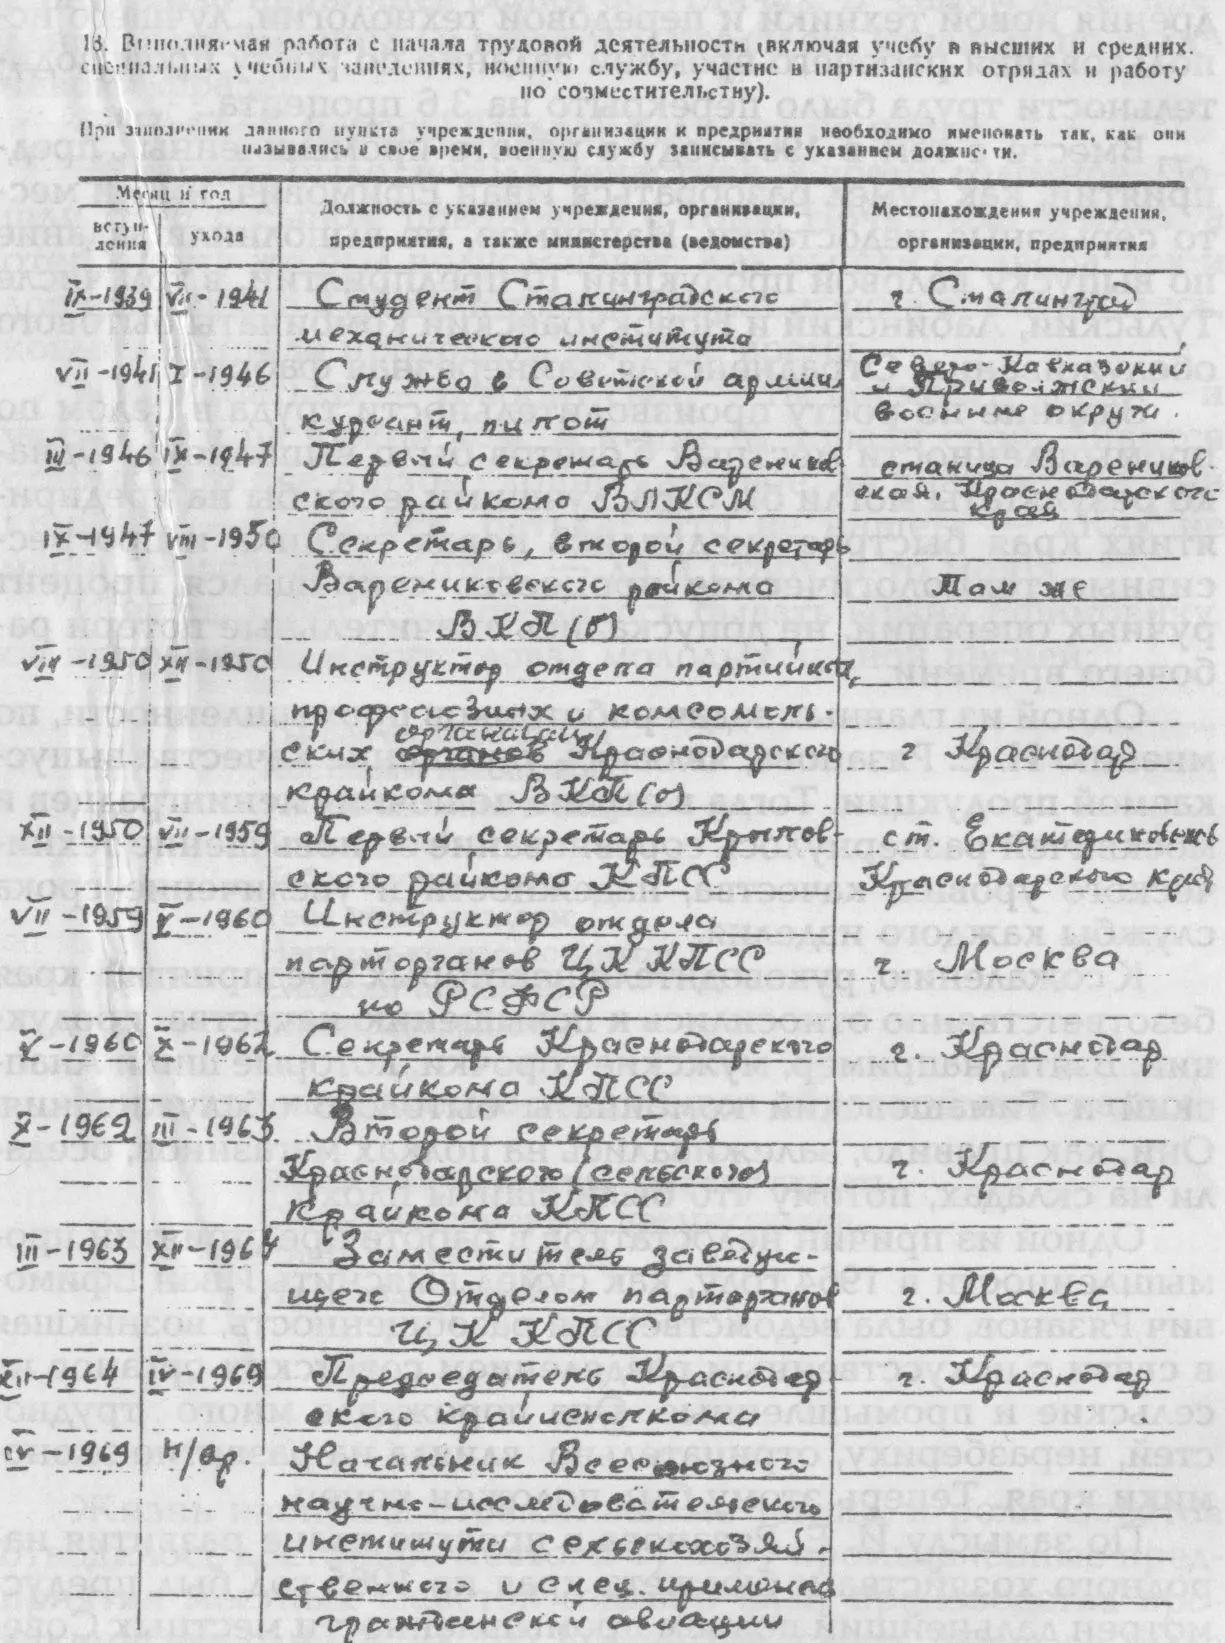 18. Выполняемая работа с начала трудовой деятельности (включая учебу в высших и средних
специальных учебных заведениях, военную службу, участие в партизанских отрядах и работу
по совместительству).
При заполнении данного пункта учреждения, организации и предприятия необходимо именовать так, как они
назывались в свое время, военную службу записывать с указанием должности.
Месяц и год
вступ-
ления
ухода
Должность с указанием учреждения, организации,
предприятия, а также министерства (ведомства)
Местонахождения учреждения,
организации, предприятия
IX-1939 VII-1941 Студент Сталинградского г. Сталинград
механического института
VII-1941 I-1946 Служба в Советской армии Северо-Кавказский
и Приволжский
курсант, пилот военные округа.
III-1946 IX-1947 Первый секретарь Вареников- станица Вареников-
ского райкома ВЛКСМ ская, Краснодарского
края
IX-1947 VIII-1950 Секретарь, второй секретарь
Варениковского райкома Там же
ВКП(б)
VIII-1950 XII-1950 Инструктор отдела партийных,
профсоюзных и комсомоль-
организаций
ских органов Краснодарского г Краснодар
крайкома ВКП(б)
XII-1950 VII-1959 Первый секретарь Крылов- ст. Екатериновская
ского райкома КПСС Краснодарского края
VII-1959 V-1960 Инструктор отдела
парторганов ЦК КПСС г. Москва
по РСФСР
V-1960 X-1962 Секретарь Краснодарского г. Краснодар
крайкома КПСС
X-1962 III-1963 Второй секретарь
Краснодарского (сельского) г. Краснодар
крайкома КПСС
III-1963 XII-1964 Заместитель заведую-
щего Отделом парторганов г. Москва
ЦК КПСС
XII-1964 IV-1969 Председатель Краснодар- г. Краснодар
ского крайисполкома
IV-1969 н/вр. Начальник Всесоюзного
научно-исследовательского
института сельскохозяй-
ственного и спец. применен
гражданской авиации